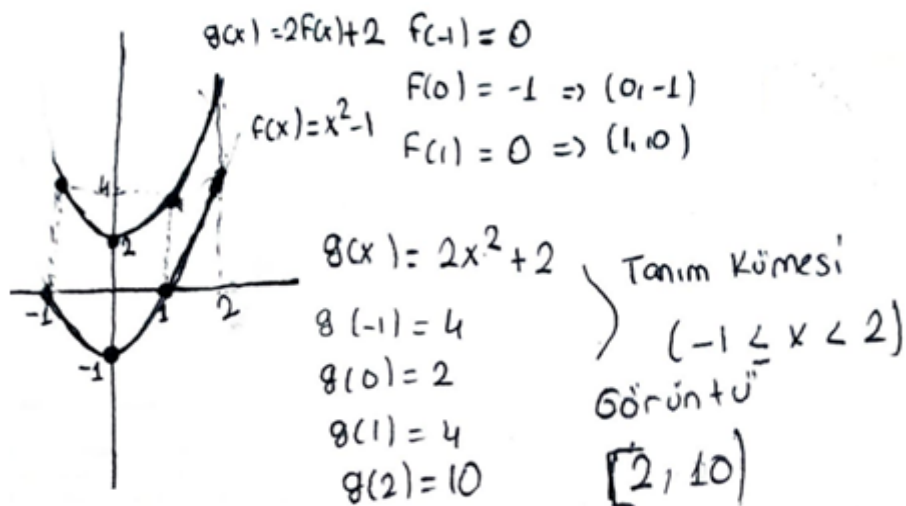 g(x) = 2F(x)+2 F(-1) = 0
F(0) = -1 => (0, -1)
f(x) = x²-1
F(1) = 0 => (1, 0)
4
2
-1 1 2
-1
g(x) = 2x² + 2
g(-1) = 4
g(0) = 2
g(1) = 4
g(2) = 10
Tanım Kümesi
(-1 ≤ x < 2)
Görüntü
[2, 10)